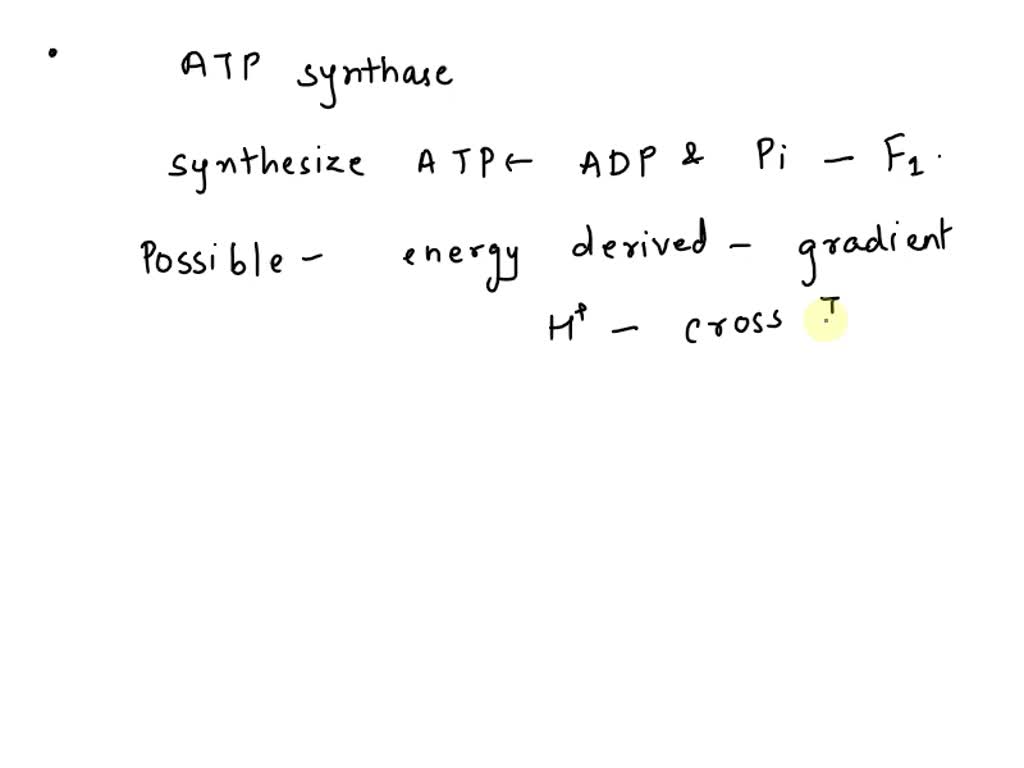 • ATP synthase
synthesize ATP ← ADP & Pi – F₁.
Possible – energy derived – gradient
H⁺ – cross T